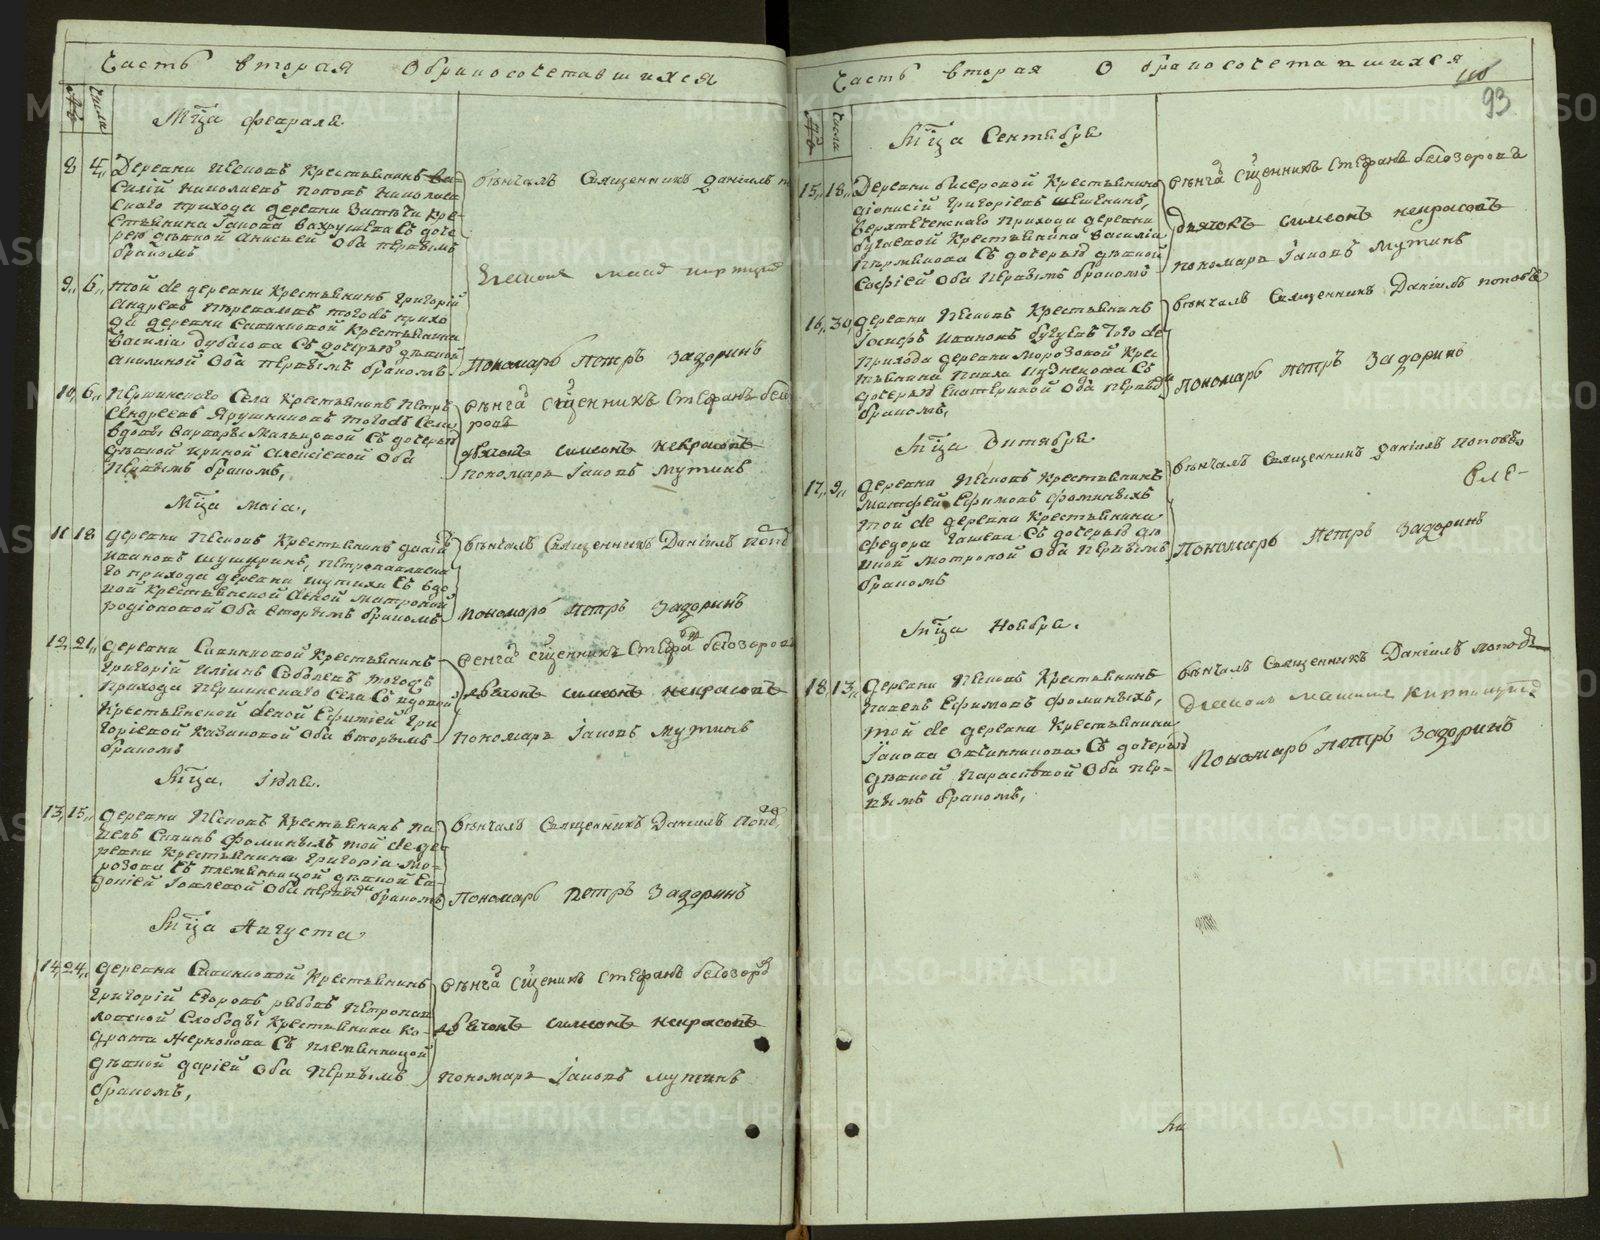 Часть вторая О бракосочетавшихся
числа
Мца февраля
8 4,, Деревни Песковъ Крестьянинъ Ва-
силей Николаевъ Поповъ Николаев
скаго прихода деревни
стьянина Іакова Вахрушева Съ доче
рею дѣвкой Анисьей Оба первымъ
бракомъ
Вѣнчалъ Священникъ Даніилъ
9,, 6,, Той же деревни Крестьянинъ Григорій
Андреевъ тогожъ прихо
да деревни Савинковой Крестьянина
Василіа Дубасова Съ дочерью дѣвкой
Акилиной Оба первымъ бракомъ
Пономарь Петръ Задоринъ
10, 6,, Першинскаго Села Крестьянинъ Петръ
Андреевъ Ярушниковъ тогожъ Села
вдовы Варвары Мальцовой Съ дочерью
дѣвкой Ириной Алексіевой Оба
Первымъ бракомъ,
Вѣнча Сщенникъ Стефанъ бело
ровъ
дьячокъ симеонъ некрасовъ
пономарь Іаковъ Мутинъ
Мца Маіа,
11 18 деревни Песковъ Крестьянинъ
Ивановъ Шушаринъ, Петропавловска
го прихода деревни Шутихи Съ вдо
вой Крестьянской женой Матроной
Родіоновой Оба вторымъ бракомъ
Вѣнчалъ Священникъ Даніилъ Попо
Пономарь Петръ Задоринъ
12, 21,, деревни Савинковой Крестьянинъ
Григорій Ильинъ Соболевъ тогожъ
прихода Першинскаго Села Съ вдовой
Крестьянской женой Ефиміей Гри
горіевой Казаковой Оба вторымъ
бракомъ
Венча сщенникъ Стефа белозоровъ
дьячокъ симеонъ некрасовъ
пономарь Іаковъ Мутинъ
Мца Іюля.
13, 15,, деревни Песковъ Крестьянинъ Па
велъ Савинъ Фоминыхъ той же де
ревни Крестьянина Григоріа Мо-
розова Съ племянницой дѣвкой Ев
докіей Іовлевой Оба первымъ бракомъ
Вѣнчалъ Священникъ Даніилъ Попо
Пономарь Петръ Задоринъ
Мца Августа
14, 24,, деревни Савинковой Крестьянинъ
Григорій Егоровъ рябовъ Петропав
ловской Слободы Крестьянина Ко-
драта Жернокова Съ племянницой
дѣвкой дарьей Оба Первымъ
бракомъ,
Вѣнча сщеникъ Стефанъ белозоро
дьячокъ симеонъ некрасовъ
пономарь Іаковъ мутинъ
Часть вторая О бракосочетавшихся
93
числа
Мца Сентября
15,, 18,, Деревни бисеровой Крестьянинъ
діонисій Григоріевъ Шешенинъ,
Верхтеченскаго Прихода деревни
бугаевой Крестьянина Василіа
Пермякова Съ дочерью дѣвкой
Софіей Оба Первымъ бракомъ
Вѣнча Сщенникъ Стефанъ белозоровъ
Дьячокъ симеонъ некрасовъ
пономарь Іаковъ Мутинъ
16, 30, деревни Песковъ Крестьянинъ
Іосифъ Ивановъ бугуевъ того же
Прихода деревни Морозовой Крес
тьянина Павла Кузнецова Съ
дочерью Екатериной Оба первым
бракомъ,
Вѣнчалъ Священникъ Даніилъ поповъ
Пономарь Петръ Задоринъ
Мца Октября
17,, 9,, деревни Песковъ Крестьянинъ
Матфей Ефимовъ Фоминыхъ
той же деревни Крестьянина
Федора Гашева Съ дочерью дѣ
вкой Мотроной Оба Первымъ
бракомъ
Вѣнчалъ Священникъ Даніилъ Поповъ
Пономарь Петръ Задоринъ
Мца Ноября.
18, 13,, Деревни Песковъ Крестьянинъ
Павелъ Ефимовъ Фоминыхъ,
той же деревни Крестьянина
Іакова Овчинникова Съ дочерью
дѣвкой Параскевой Оба пер-
вымъ бракомъ,
Вѣнчалъ Священникъ Даніилъ Поповъ
Пономарь Петръ Задоринъ
METRIKI.GASO-URAL.RU